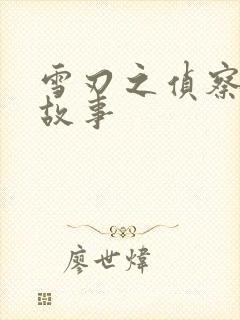 雪刃之偵察
故事
廖世煒